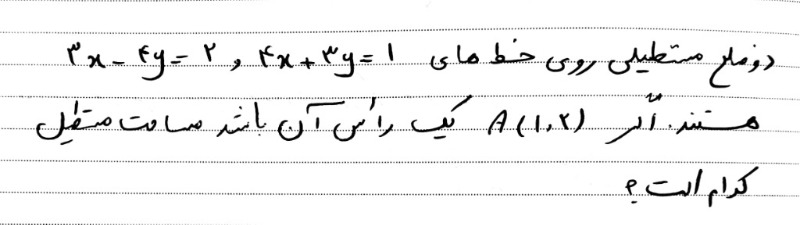 دو ضلع مستطیلی روی خط های ۴x + ۳y = ۱ , ۳x - ۴y = ۲
هستند. اگر A(۱,۲) یک رأس آن باشد مساحت مستطیل
کدام است؟